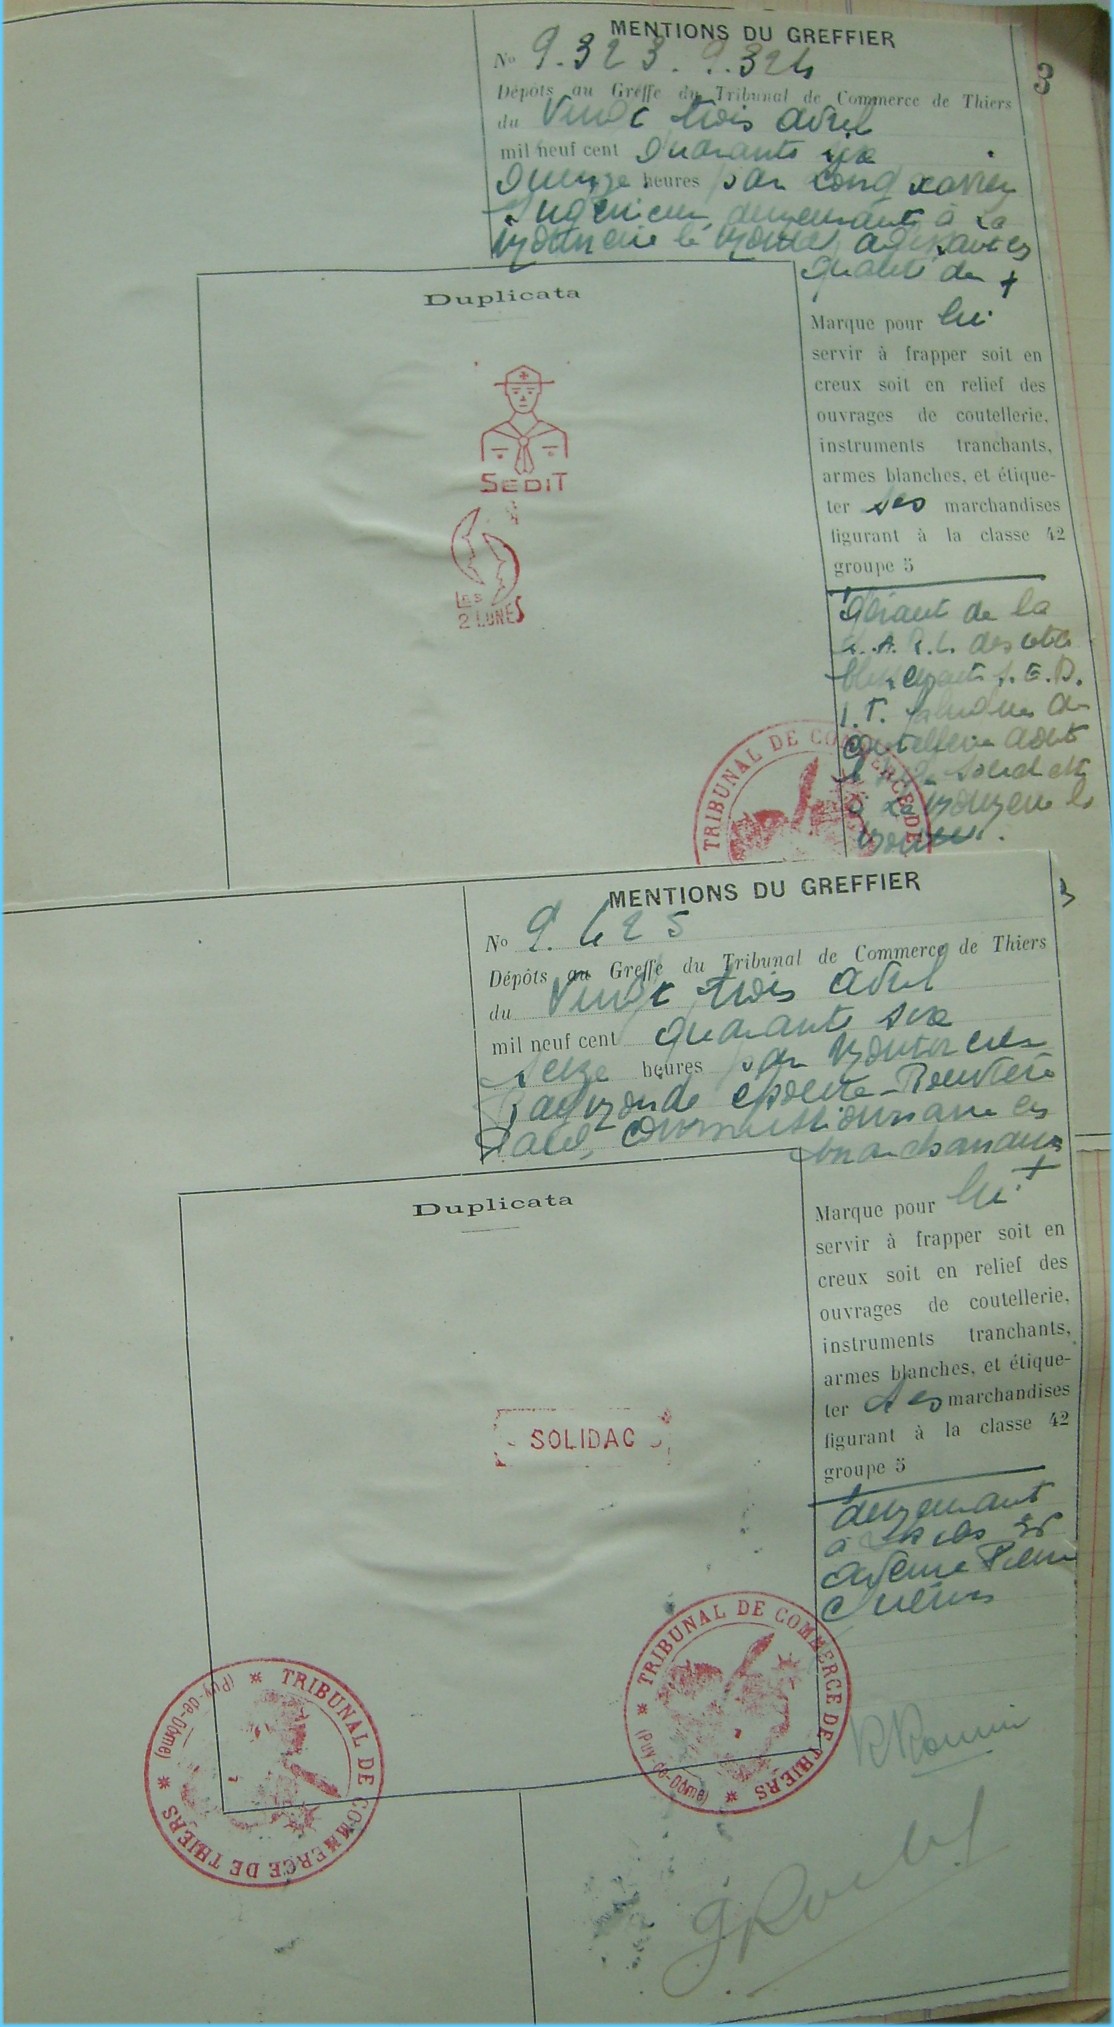 MENTIONS DU GREFFIER
3
No 9.323. 9.324
Dépôts au Greffe du Tribunal de Commerce de Thiers
du Vingt trois avril
mil neuf cent quarante six
quinze heures par Xavier
Ingénieur, demeurant à La
agissant en
qualité de +
Duplicata
Marque pour lui
servir à frapper soit en
creux soit en relief des
ouvrages de coutellerie,
instruments tranchants,
armes blanches, et étique-
ter ses marchandises
figurant à la classe 42
groupe 5
SEDIT
Les
2 LUNES
+ gérant de la
S.A.R.L. des éta
blissements S.E.D.
I.T. de
coutellerie dont
le siège social est
à La
TRIBUNAL DE COMMERCE DE
MENTIONS DU GREFFIER
3
No 9.425
Dépôts au Greffe du Tribunal de Commerce de Thiers
du Vingt trois avril
mil neuf cent quarante six
seize heures par
Raymonde épouse
commissionnaire en
marchandises
Duplicata
Marque pour lui +
servir à frapper soit en
creux soit en relief des
ouvrages de coutellerie,
instruments tranchants,
armes blanches, et étique-
ter ses marchandises
figurant à la classe 42
groupe 5
SOLIDAC
+ demeurant
à
avenue Pierre
TRIBUNAL DE COMMERCE DE THIERS
(Puy-de-Dôme)
TRIBUNAL DE COMMERCE DE THIERS
(Puy-de-Dôme)